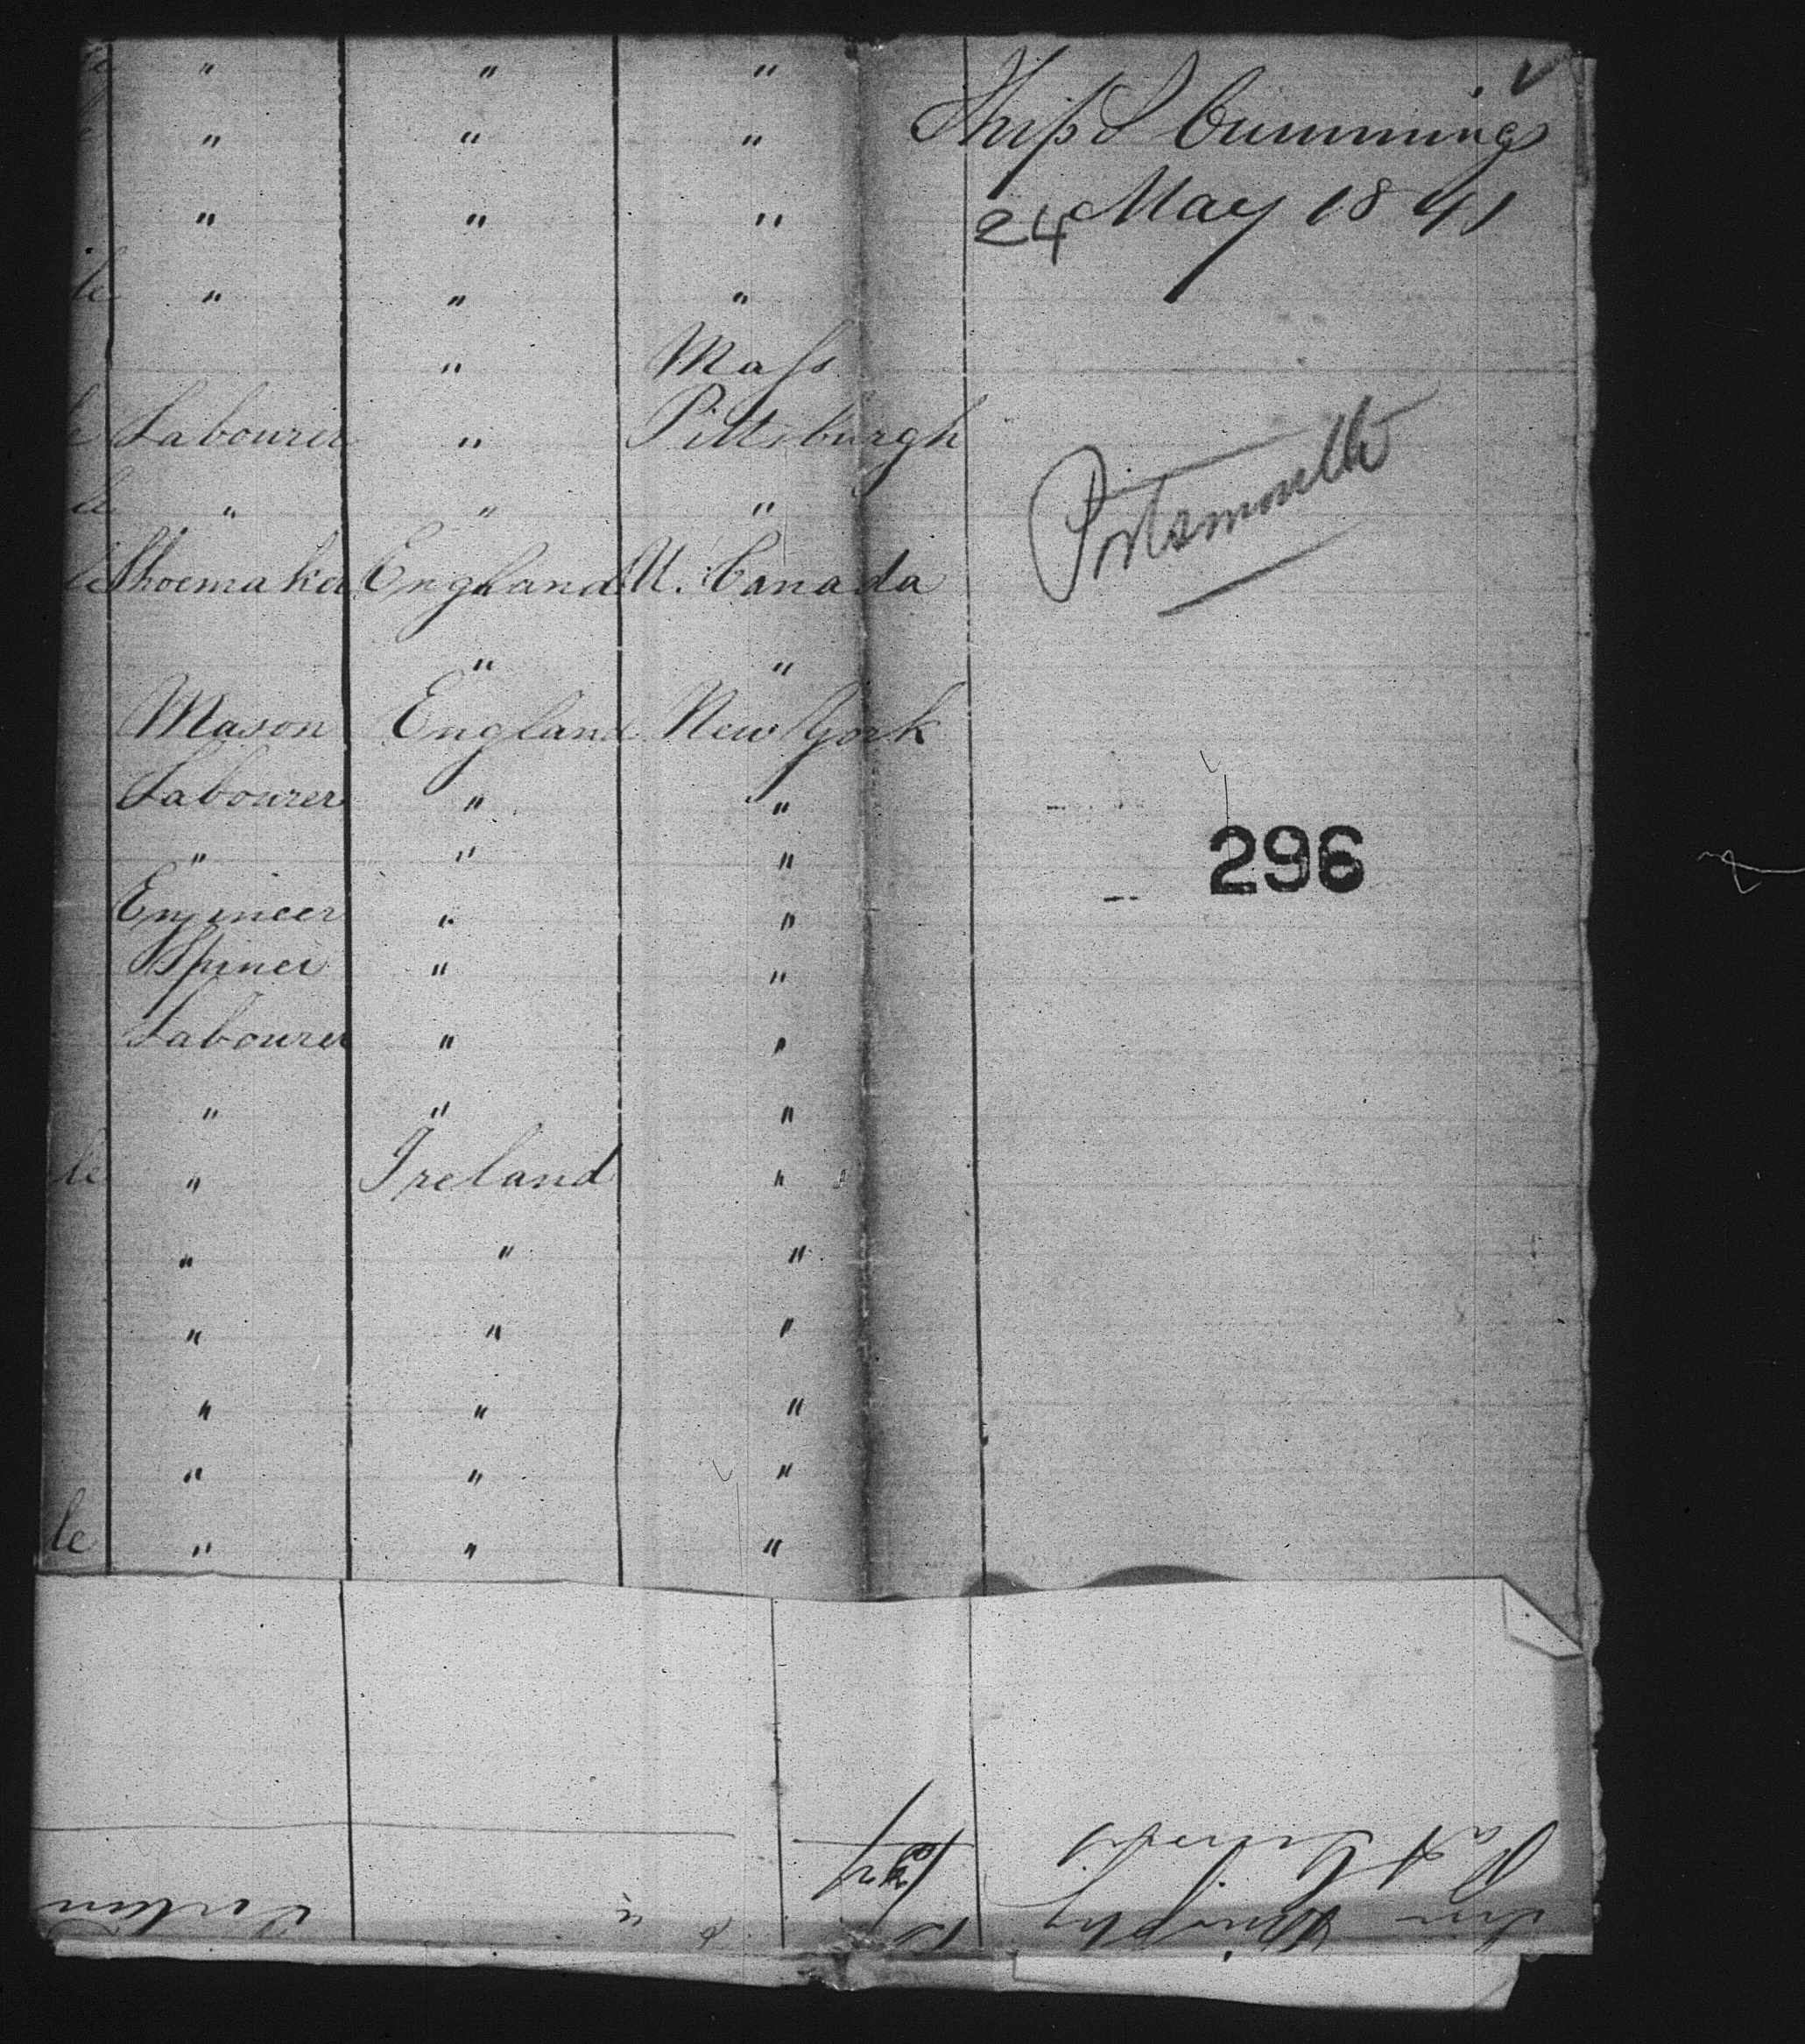 " " "
" " "
" " "
le " " "
" Mass
le Labourer " Pittsburgh
le " " "
le Shoemaker England U. Canada
" "
Mason England New York
Labourer " "
" " "
Engineer " "
Spiner " "
Labourer " "
" " "
le " Ireland "
" " "
" " "
" " "
" " "
le " " "
Ship S Cummings
24 May 1841
Portsmouth
296